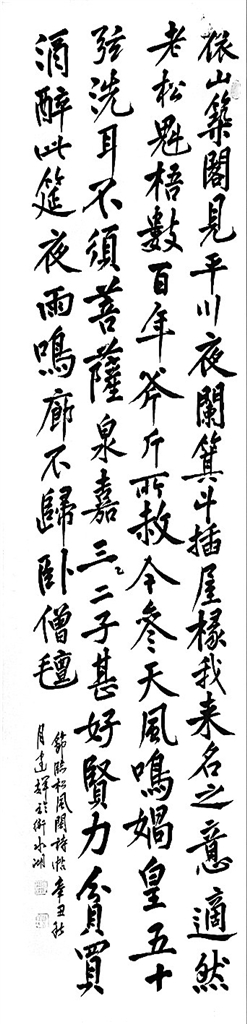 依山築閣見平川夜闌箕斗插屋椽我来名之意適然
老松魁梧數百年斧斤所赦今參天風鳴媧皇五十
弦洗耳不須菩薩泉嘉三二子甚好賢力貧買
酒醉此筵夜雨鳴廊不歸卧僧氊
節臨松風閣詩帖辛丑秋
月建輝於衡水湖